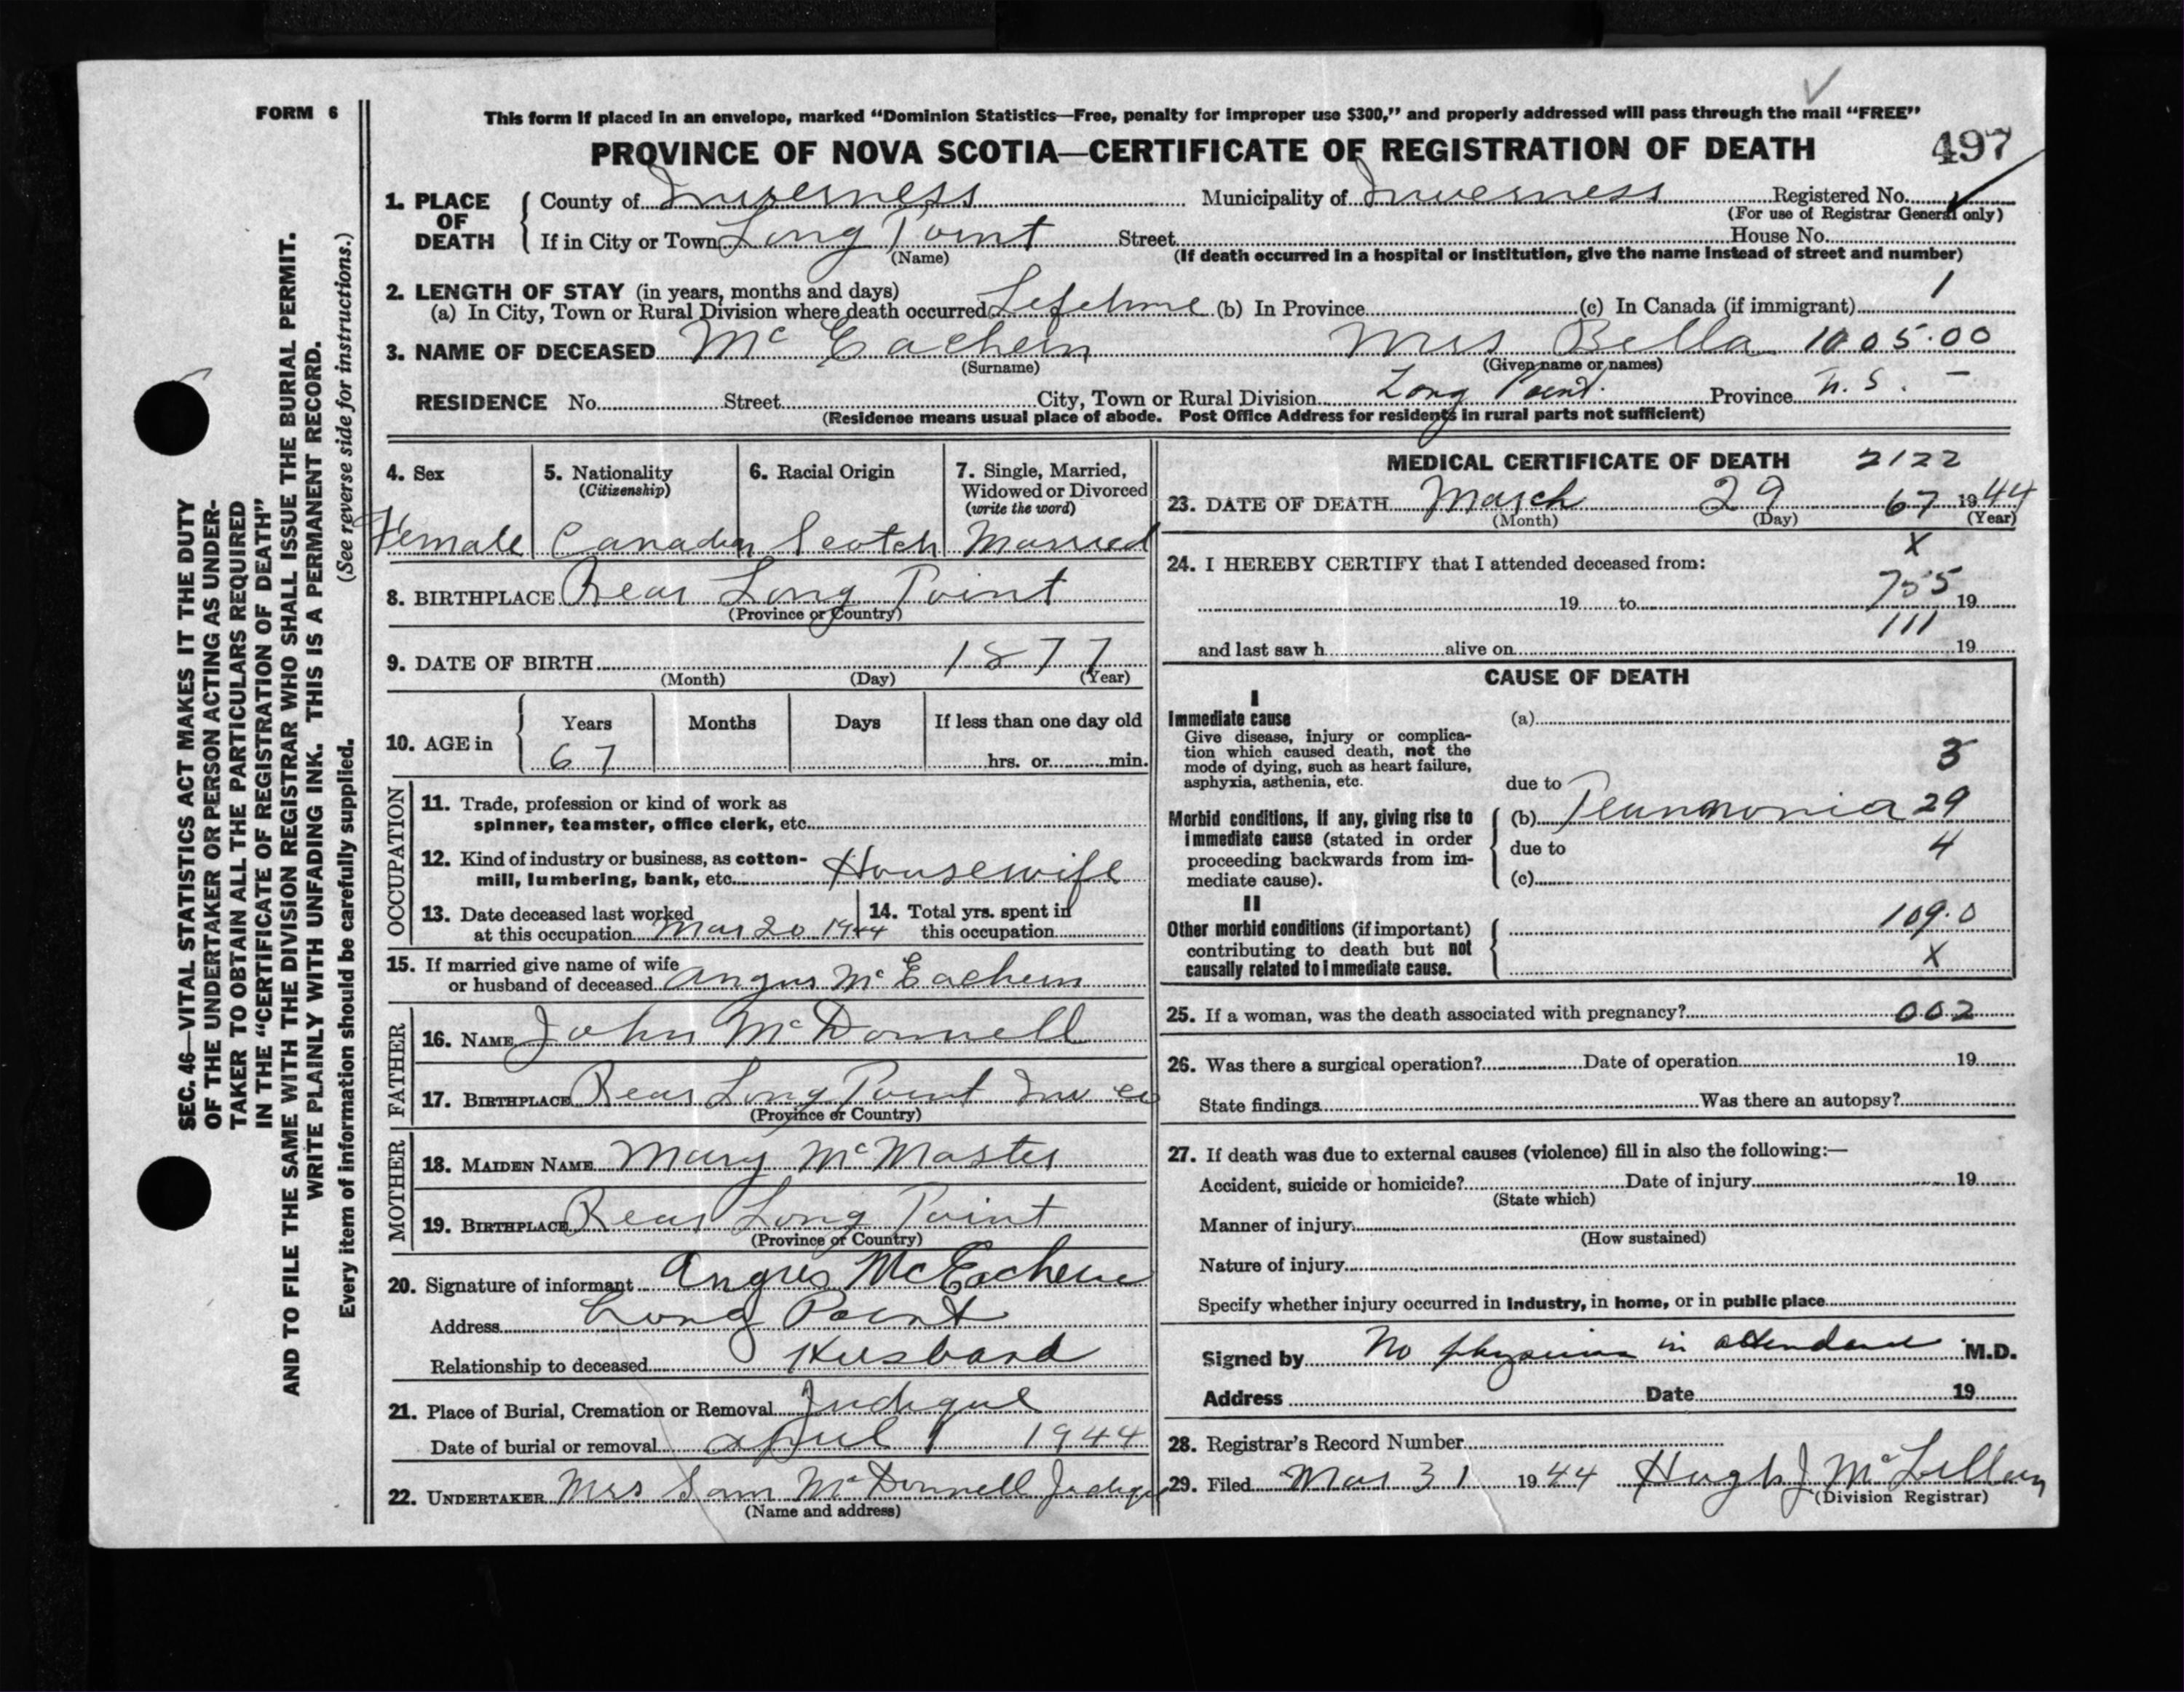 FORM 6
This form if placed in an envelope, marked "Dominion Statistics—Free, penalty for improper use $300," and properly addressed will pass through the mail "FREE"
PROVINCE OF NOVA SCOTIA—CERTIFICATE OF REGISTRATION OF DEATH 497
1. PLACE OF DEATH County of Inverness Municipality of Inverness Registered No.
(For use of Registrar General only)
If in City or Town Long Point Street House No.
(Name) (If death occurred in a hospital or institution, give the name instead of street and number)
2. LENGTH OF STAY (in years, months and days) 1
(a) In City, Town or Rural Division where death occurred Lifetime (b) In Province (c) In Canada (if immigrant)
3. NAME OF DECEASED McEachern Mrs Bella 1005.00
(Surname) (Given name or names)
RESIDENCE No. Street City, Town or Rural Division Long Point. Province N.S. –
(Residence means usual place of abode. Post Office Address for residents in rural parts not sufficient)
4. Sex 5. Nationality (Citizenship) 6. Racial Origin 7. Single, Married, Widowed or Divorced (write the word)
Female Canadian Scotch Married
8. BIRTHPLACE Rear Long Point
(Province or Country)
9. DATE OF BIRTH 1877
(Month) (Day) (Year)
10. AGE in Years Months Days If less than one day old
67 hrs. or min.
OCCUPATION
11. Trade, profession or kind of work as
spinner, teamster, office clerk, etc.
12. Kind of industry or business, as cotton-
mill, lumbering, bank, etc. Housewife
13. Date deceased last worked
at this occupation Mar 20 1944
14. Total yrs. spent in
this occupation
15. If married give name of wife
or husband of deceased Angus McEachern
FATHER
16. NAME John McDonnell
17. BIRTHPLACE Rear Long Point Inv Co
(Province or Country)
MOTHER
18. MAIDEN NAME Mary McMaster
19. BIRTHPLACE Rear Long Point
(Province or Country)
20. Signature of informant Angus McEachern
Address Long Point
Relationship to deceased Husband
21. Place of Burial, Cremation or Removal Judique
Date of burial or removal April 1 1944
22. UNDERTAKER Mrs Sam McDonnell Judique
(Name and address)
MEDICAL CERTIFICATE OF DEATH 2122
23. DATE OF DEATH March 29 67 1944
(Month) (Day) (Year)
X
24. I HEREBY CERTIFY that I attended deceased from:
19 to 755 19
111
and last saw h alive on 19
CAUSE OF DEATH
I
Immediate cause (a)
Give disease, injury or complica-
tion which caused death, not the
mode of dying, such as heart failure,
asphyxia, asthenia, etc. due to
3
Morbid conditions, if any, giving rise to
immediate cause (stated in order
proceeding backwards from im-
mediate cause).
(b) Peunmonia 29
due to 4
(c)
II
Other morbid conditions (if important)
contributing to death but not
causally related to immediate cause.
109.0
X
25. If a woman, was the death associated with pregnancy? 002
26. Was there a surgical operation? Date of operation 19
State findings Was there an autopsy?
27. If death was due to external causes (violence) fill in also the following:—
Accident, suicide or homicide? Date of injury 19
(State which)
Manner of injury
(How sustained)
Nature of injury
Specify whether injury occurred in industry, in home, or in public place
Signed by No physician in attendance M.D.
Address Date 19
28. Registrar's Record Number
29. Filed Mar 31 1944 Hugh J McLellan
(Division Registrar)
SEC. 46—VITAL STATISTICS ACT MAKES IT THE DUTY
OF THE UNDERTAKER OR PERSON ACTING AS UNDER-
TAKER TO OBTAIN ALL THE PARTICULARS REQUIRED
IN THE "CERTIFICATE OF REGISTRATION OF DEATH"
AND TO FILE THE SAME WITH THE DIVISION REGISTRAR WHO SHALL ISSUE THE BURIAL PERMIT.
WRITE PLAINLY WITH UNFADING INK. THIS IS A PERMANENT RECORD.
Every item of information should be carefully supplied. (See reverse side for instructions.)